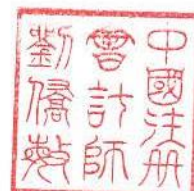 中國注册
會計師
劉僑